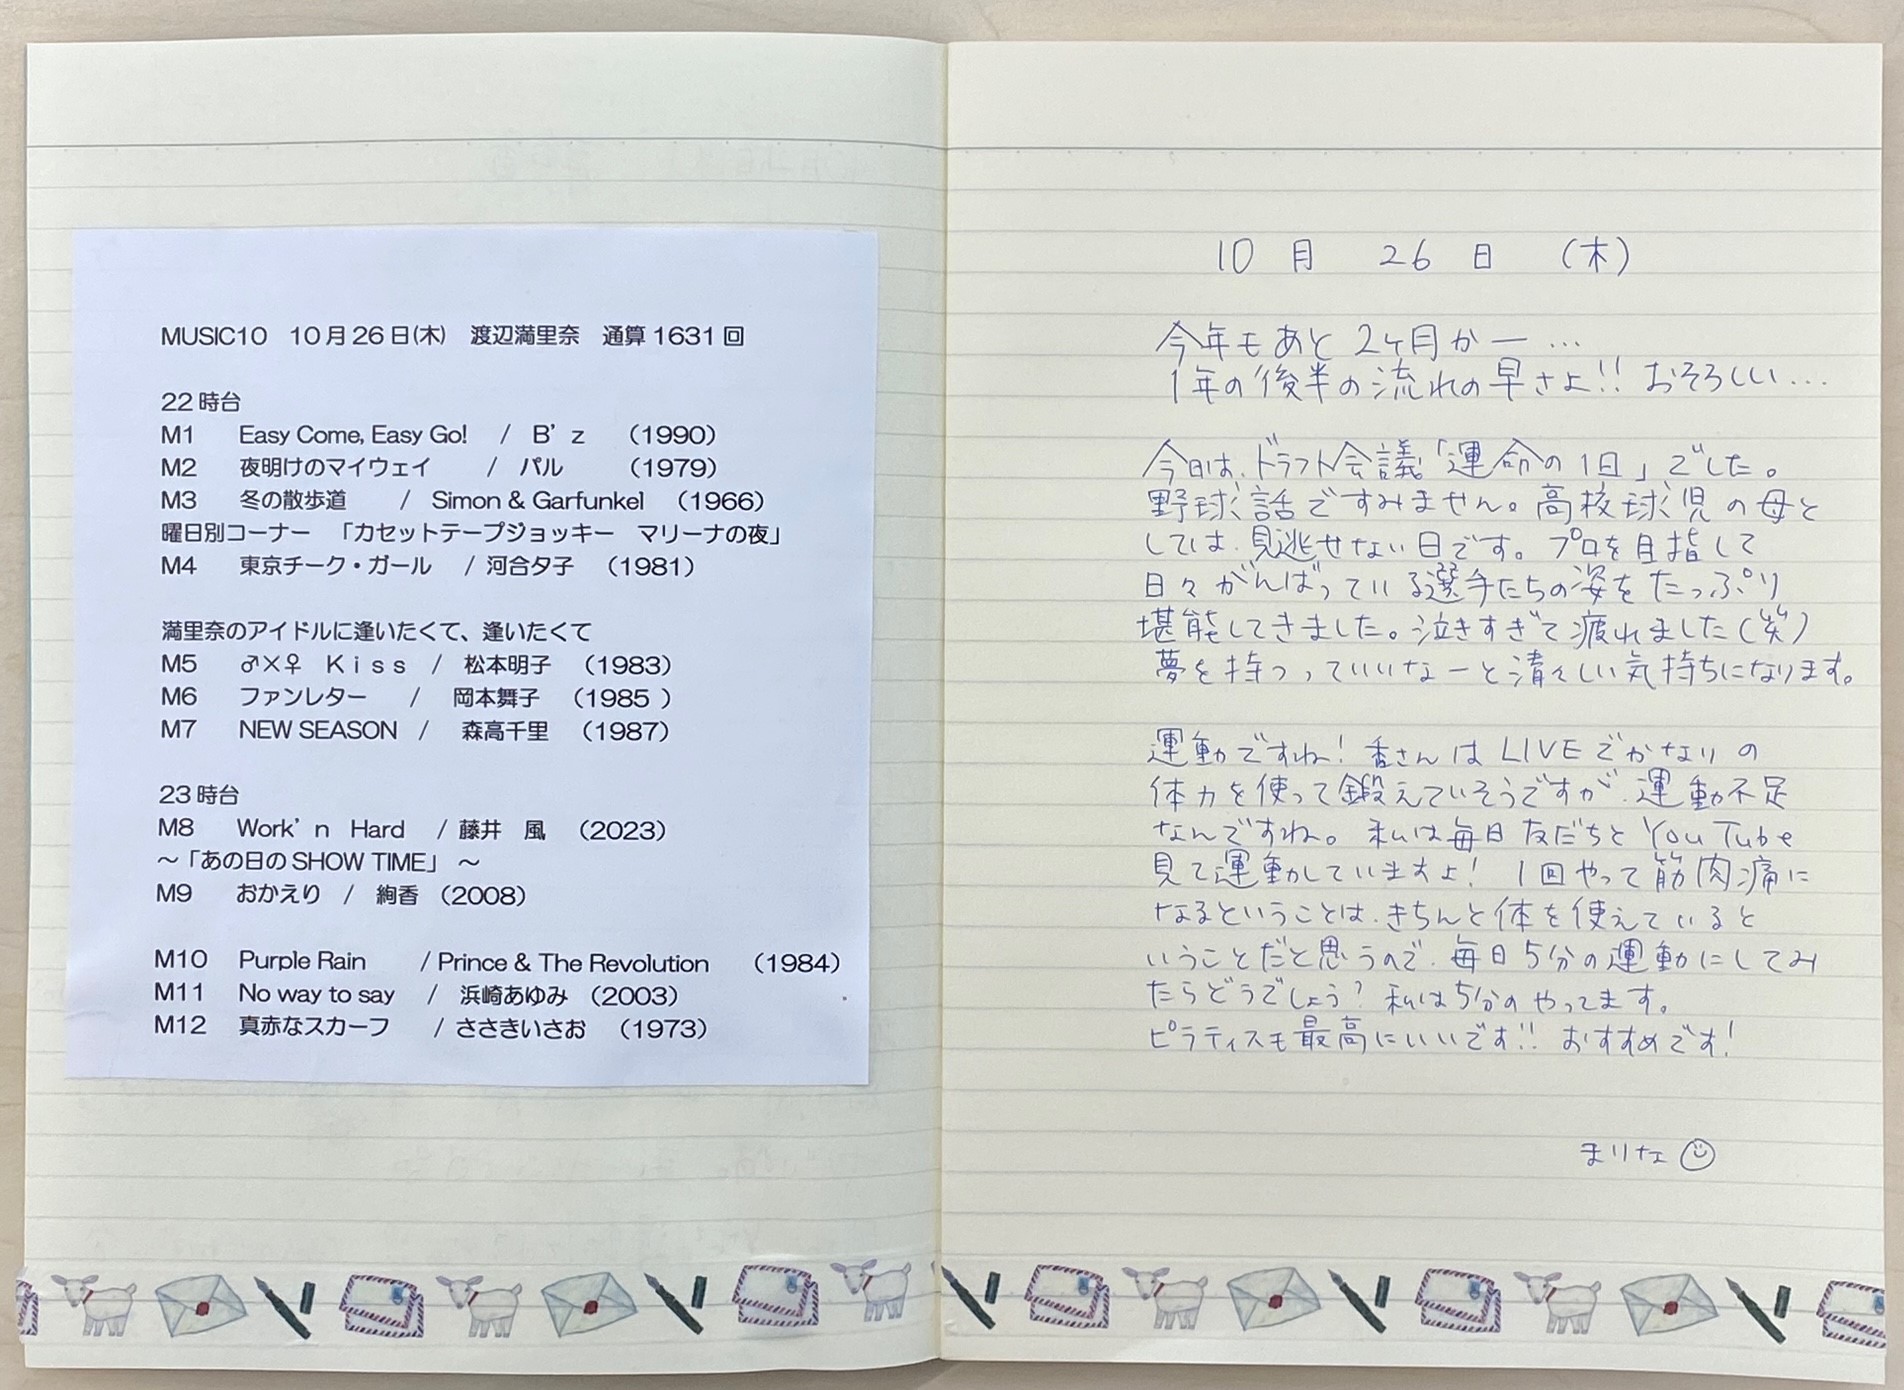 MUSIC10　10月26日(木)　渡辺満里奈　通算1631回
22時台
M1　Easy Come, Easy Go!　/　B'z　（1990）
M2　夜明けのマイウェイ　/　パル　（1979）
M3　冬の散歩道　/　Simon & Garfunkel　（1966）
曜日別コーナー　「カセットテープジョッキー　マリーナの夜」
M4　東京チーク・ガール　/ 河合夕子　（1981）
満里奈のアイドルに逢いたくて、逢いたくて
M5　♂×♀　Kiss　/　松本明子　（1983）
M6　ファンレター　/　岡本舞子　（1985 ）
M7　NEW SEASON　/　森高千里　（1987）
23時台
M8　Work'n Hard　/ 藤井　風　（2023）
～「あの日のSHOW TIME」～
M9　おかえり　/　絢香　（2008）
M10　Purple Rain　/ Prince & The Revolution　（1984）
M11　No way to say　/　浜崎あゆみ　（2003）
M12　真赤なスカーフ　/ ささきいさお　（1973）
10月 26日 （木）
今年もあと2ヶ月かー…
1年の後半の流れの早さよ!! おそろしい…
今日は、ドラフト会議「運命の1日」でした。
野球話ですみません。高校球児の母と
しては、見逃せない日です。プロを目指して
日々がんばっている選手たちの姿をたっぷり
堪能してきました。泣きすぎて疲れました(笑)
夢を持つっていいなーと清々しい気持ちになります。
運動ですね! 香さんはLIVEでかなりの
体力を使って鍛えていそうですが、運動不足
なんですね。私は毎日友だちとYouTube
見て運動していますよ! 1回やって筋肉痛に
なるということは、きちんと体を使えていると
いうことだと思うので、毎日5分の運動にしてみ
たらどうでしょう? 私は5分のやってます。
ピラティスも最高にいいです!! おすすめです!
まりな